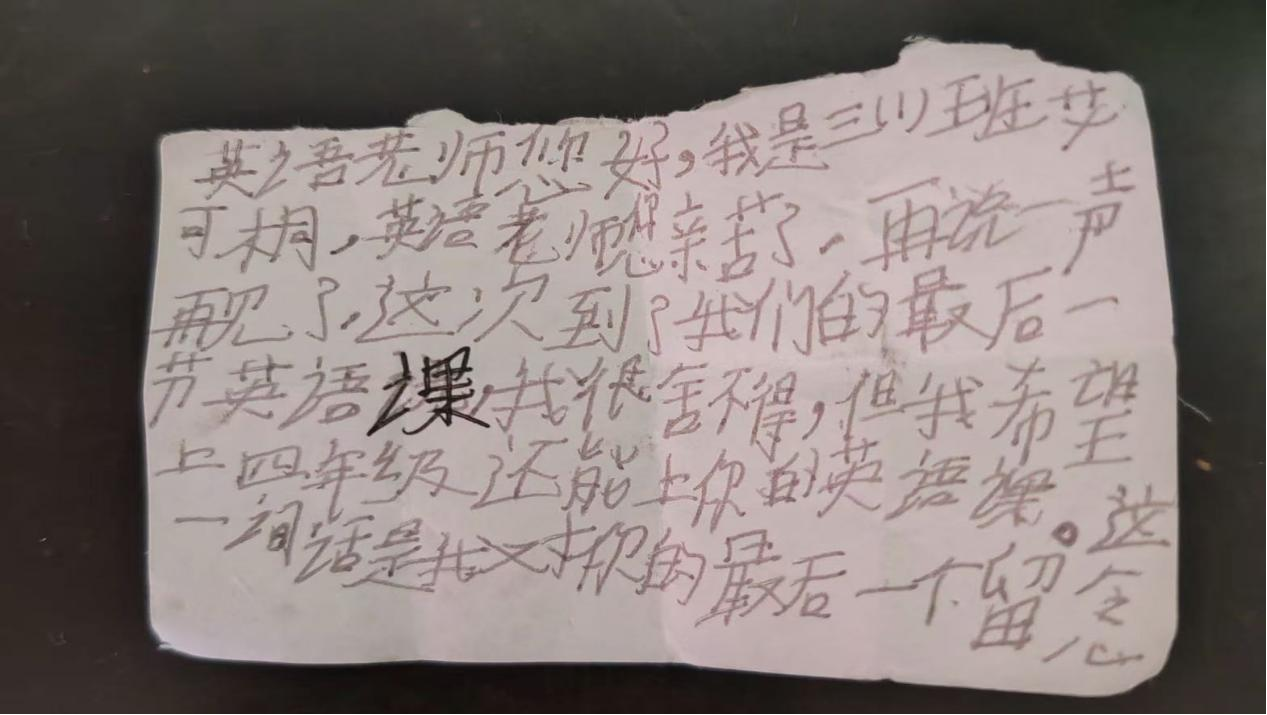 英语老师您好，我是三(1)班艾
可桐，英语老师您亲苦了，再说一声
再见了，这次到了我们的最后一
节英语课，我很舍不得，但我希望
上四年级还能上你的英语课。这
一句话是我对你的最后一个留念